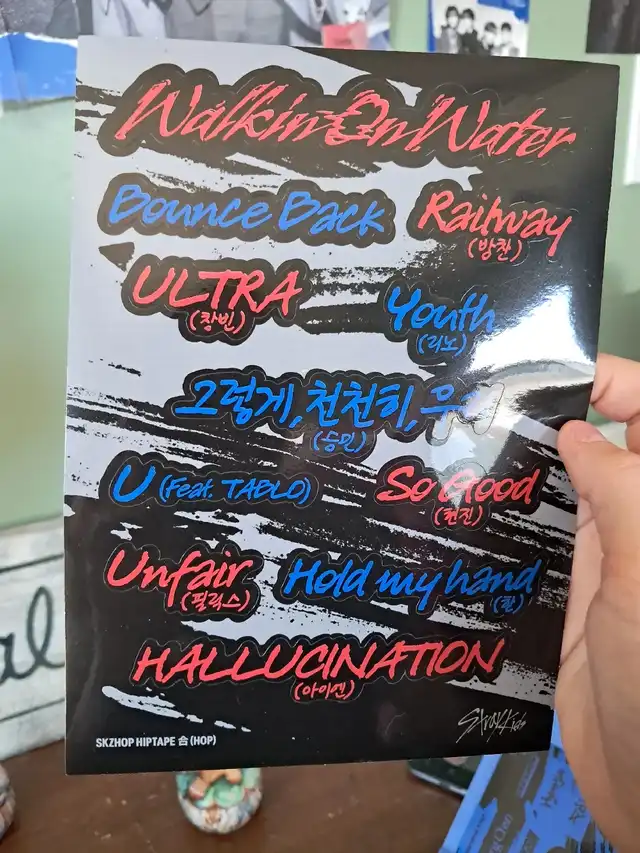 Walkin On Water
Bounce Back
Railway
(방찬)
ULTRA
(창빈)
Youth
(리노)
그렇게, 천천히,
(승민)
U (Feat. TABLO)
So Good
(현진)
Unfair
(필릭스)
Hold my hand
(한)
HALLUCINATION
(아이엔)
SKZHOP HIPTAPE 合 (HOP)
Stray Kids
al